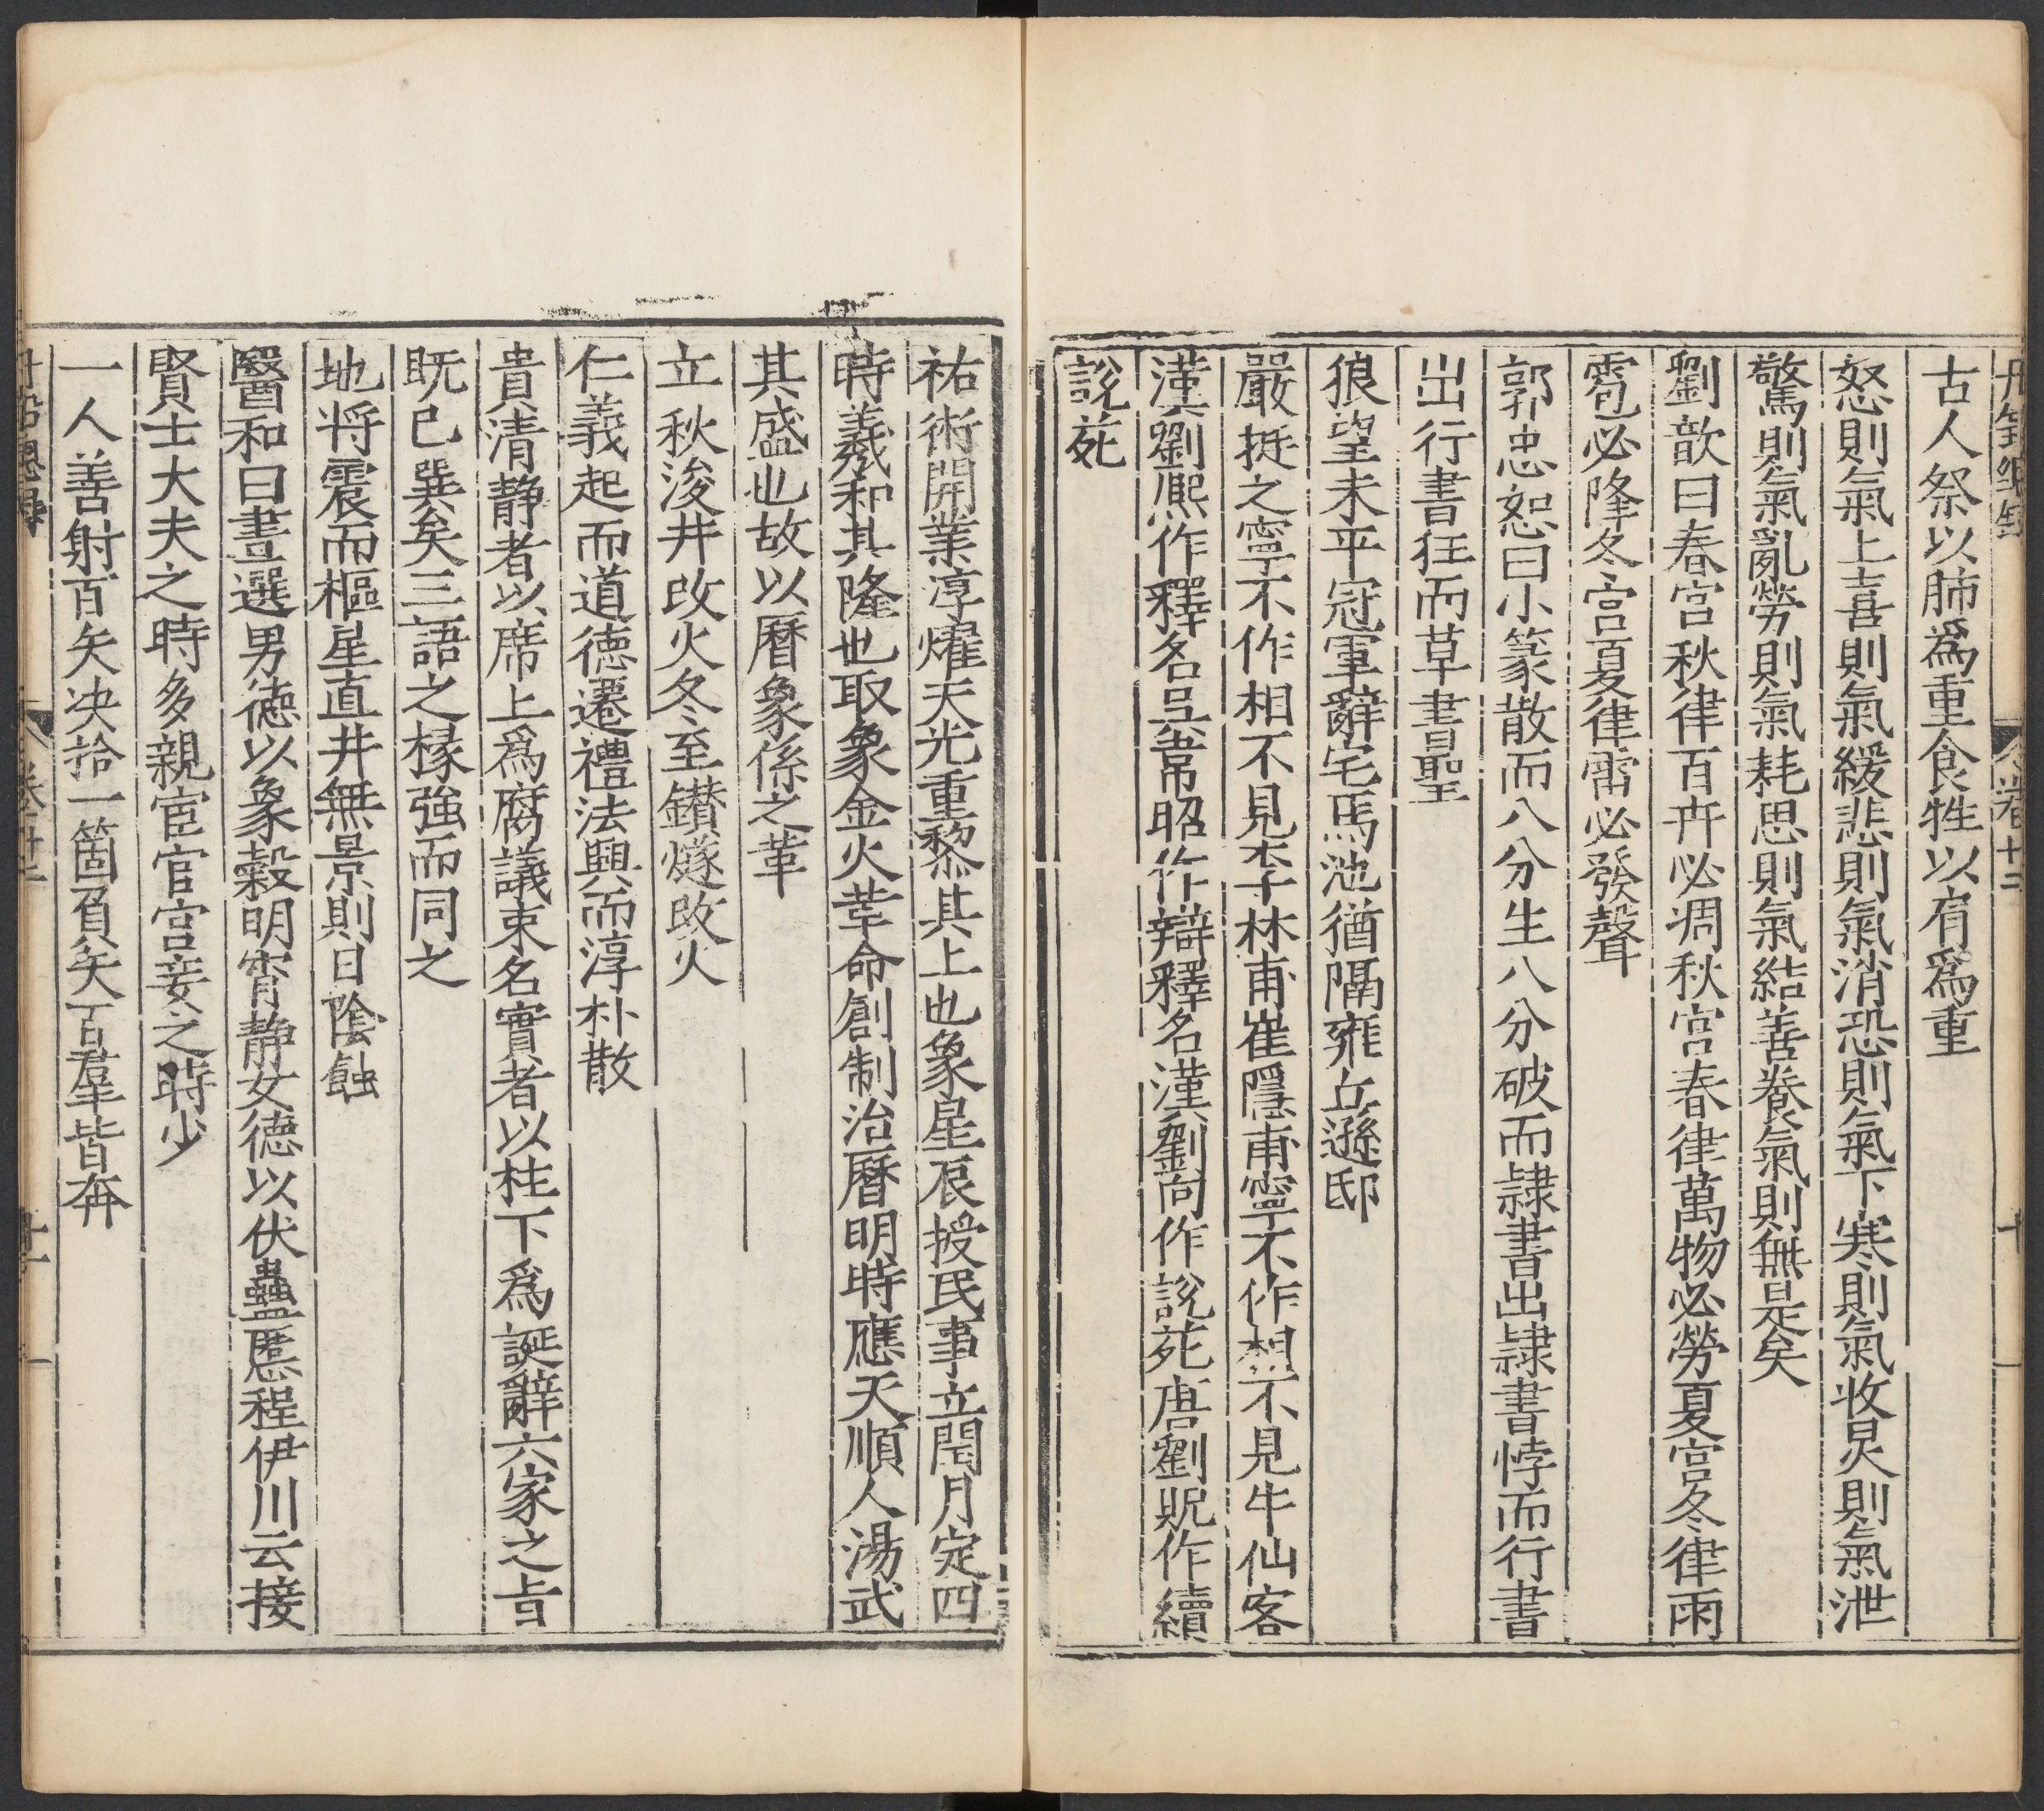 古人祭以肺爲重食牲以肩爲重
怒則氣上喜則氣緩悲則氣消恐則氣下寒則氣收炅則氣泄
驚則氣亂勞則氣耗思則氣結善養氣則無是矣
劉歆曰春宮秋律百卉必凋秋宮春律萬物必勞夏宮冬律雨
雹必降冬宮夏律雷必發聲
郭忠恕曰小篆散而八分生八分破而隷書出隷書悖而行書
出行書狂而草書聖
狼望未平冠軍辭宅馬池猶隔雍丘遜邸
嚴挺之寧不作相不見李林甫崔隱甫寧不作相不見牛仙客
漢劉熈作釋名吳韋昭作辯釋名漢劉向作說苑唐劉貺作續
說苑
祐術開業淳燿天光重黎其上也象星辰授民事立閏月定四
時羲和其隆也取象金火革命創制治曆明時應天順人湯武
其盛也故以曆象係之革
立秋浚井改火冬至鑚燧改火
仁義起而道德遷禮法興而淳朴散
貴清静者以席上爲腐議束名實者以柱下爲誕辭六家之㫖
既已巽矣三語之椽強而同之
地将震而樞星直井無景則日陰蝕
醫和曰晝選男德以象穀明宵静女德以伏蠱慝程伊川云接
賢士大夫之時多親宦官宮妾之時少
一人善射百矢决拾一箇負矢百羣皆奔